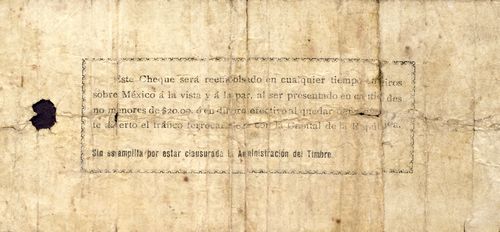 Este Cheque será reembolsado en cualquier tiempo en giros
sobre México á la vista y á la par, al ser presentado en cantidades
no menores de $20.00, ó en dinero efectivo al quedar
te abierto el tráfico ferrocarrilero con la Capital de la República.
Sin estampilla por estar clausurada la Administración del Timbre.